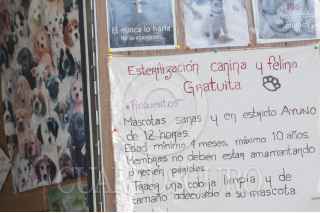 Él nunca lo haría
Esterilización canina y felina
Gratuita
Requisitos
Mascotas sanas y en estricto Ayuno
de 12 horas.
Edad mínimo 4 meses, máximo 10 años.
Hembras no deben estar amamantando
o recién paridas.
Traer una cobija limpia y de
tamaño adecuado a su mascota
CUARTOSCURO